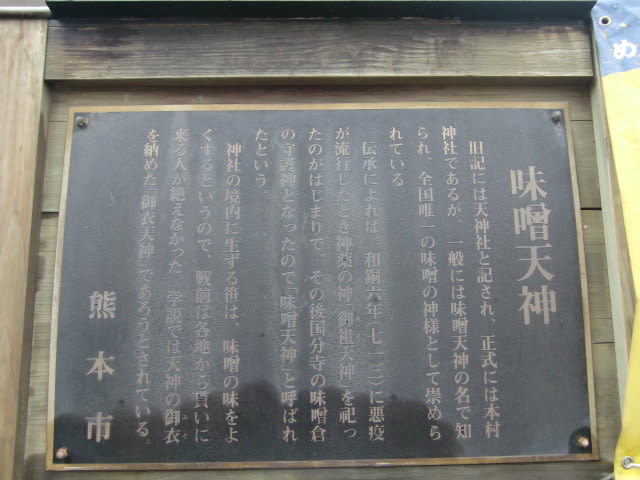 味噌天神
旧記には天神社と記され、正式には本村
神社であるが、一般には味噌天神の名で知
られ、全国唯一の味噌の神様として崇めら
れている。
伝承によれば、和銅六年(七一三)に悪疫
が流行したとき神薬の神「御祖天神」を祀っ
たのがはじまりで、その後国分寺の味噌倉
の守護神となったので「味噌天神」と呼ばれ
たという。
神社の境内に生ずる笹は、味噌の味をよ
くするというので、戦前は各地から貰いに
来る人が絶えなかった。学説では天神の御衣
を納めた「御衣天神」であろうとされている。
熊本市
め